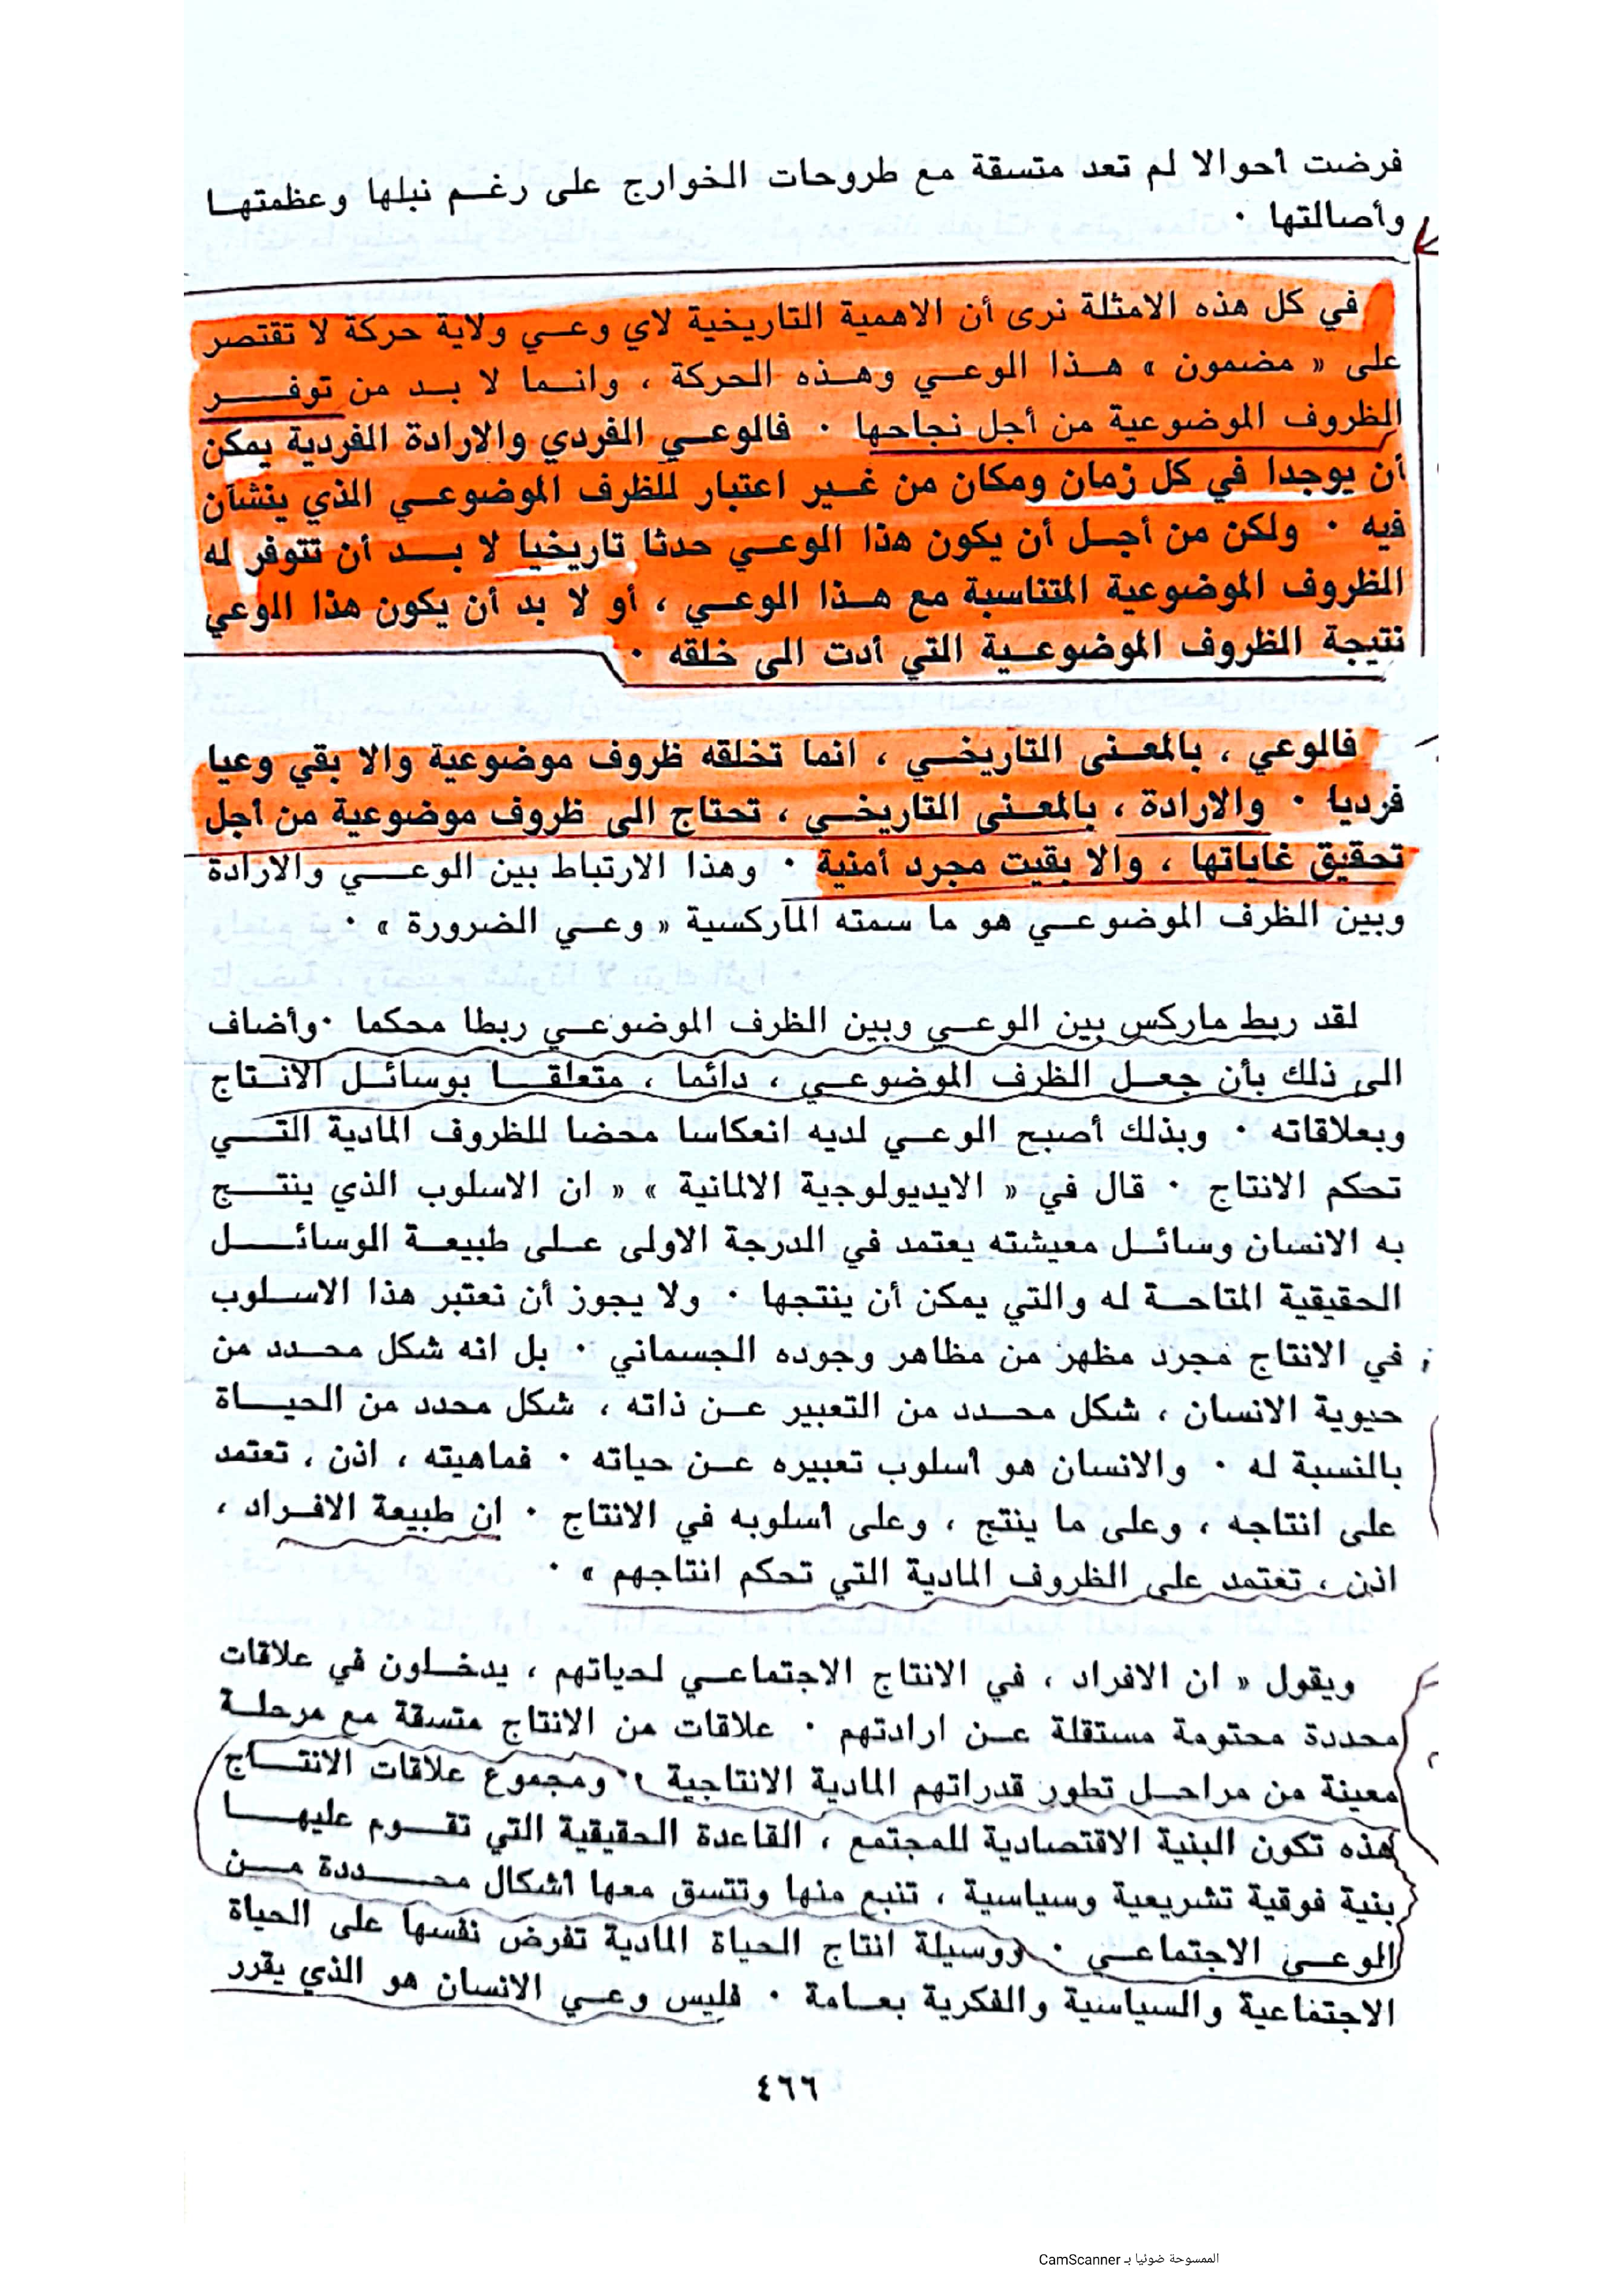 فرضت أحوالا لم تعد متسقة مع طروحات الخوارج على رغم نبلها وعظمتها
وأصالتها ٠
في كل هذه الامثلة نرى أن الاهمية التاريخية لاي وعي ولاية حركة لا تقتصر
على « مضمون » هذا الوعي وهذه الحركة ، وانما لا بد من توفر
الظروف الموضوعية من أجل نجاحها ٠ فالوعي الفردي والارادة الفردية يمكن
أن يوجدا في كل زمان ومكان من غير اعتبار للظرف الموضوعي الذي ينشآن
فيه ٠ ولكن من أجل أن يكون هذا الوعي حدثا تاريخيا لا بد أن تتوفر له
الظروف الموضوعية المتناسبة مع هذا الوعي ، أو لا بد أن يكون هذا الوعي
نتيجة الظروف الموضوعية التي أدت الى خلقه ٠
فالوعي ، بالمعنى التاريخي ، انما تخلقه ظروف موضوعية والا بقي وعيا
فرديا ٠ والارادة ، بالمعنى التاريخي ، تحتاج الى ظروف موضوعية من أجل
تحقيق غاياتها ، والا بقيت مجرد أمنية ٠ وهذا الارتباط بين الوعي والارادة
وبين الظرف الموضوعي هو ما سمته الماركسية « وعي الضرورة » ٠
لقد ربط ماركس بين الوعي وبين الظرف الموضوعي ربطا محكما ٠ وأضاف
الى ذلك بأن جعل الظرف الموضوعي ، دائما ، متعلقا بوسائل الانتاج
وبعلاقاته ٠ وبذلك أصبح الوعي لديه انعكاسا محضا للظروف المادية التي
تحكم الانتاج ٠ قال في « الايديولوجية الالمانية » « ان الاسلوب الذي ينتج
به الانسان وسائل معيشته يعتمد في الدرجة الاولى على طبيعة الوسائل
الحقيقية المتاحة له والتي يمكن أن ينتجها ٠ ولا يجوز أن نعتبر هذا الاسلوب
في الانتاج مجرد مظهر من مظاهر وجوده الجسماني ٠ بل انه شكل محدد من
حيوية الانسان ، شكل محدد من التعبير عن ذاته ، شكل محدد من الحياة
بالنسبة له ٠ والانسان هو أسلوب تعبيره عن حياته ٠ فماهيته ، اذن ، تعتمد
على انتاجه ، وعلى ما ينتج ، وعلى أسلوبه في الانتاج ٠ ان طبيعة الافراد ،
اذن ، تعتمد على الظروف المادية التي تحكم انتاجهم » ٠
ويقول « ان الافراد ، في الانتاج الاجتماعي لحياتهم ، يدخلون في علاقات
محددة محتومة مستقلة عن ارادتهم ٠ علاقات من الانتاج متسقة مع مرحلة
معينة من مراحل تطور قدراتهم المادية الانتاجية ٠ ومجموع علاقات الانتاج
هذه تكون البنية الاقتصادية للمجتمع ، القاعدة الحقيقية التي تقوم عليها
بنية فوقية تشريعية وسياسية ، تنبع منها وتتسق معها أشكال محددة من
الوعي الاجتماعي ٠ ووسيلة انتاج الحياة المادية تفرض نفسها على الحياة
الاجتماعية والسياسية والفكرية بعامة ٠ فليس وعي الانسان هو الذي يقرر
٤٦٦
الممسوحة ضوئيا بـ CamScanner